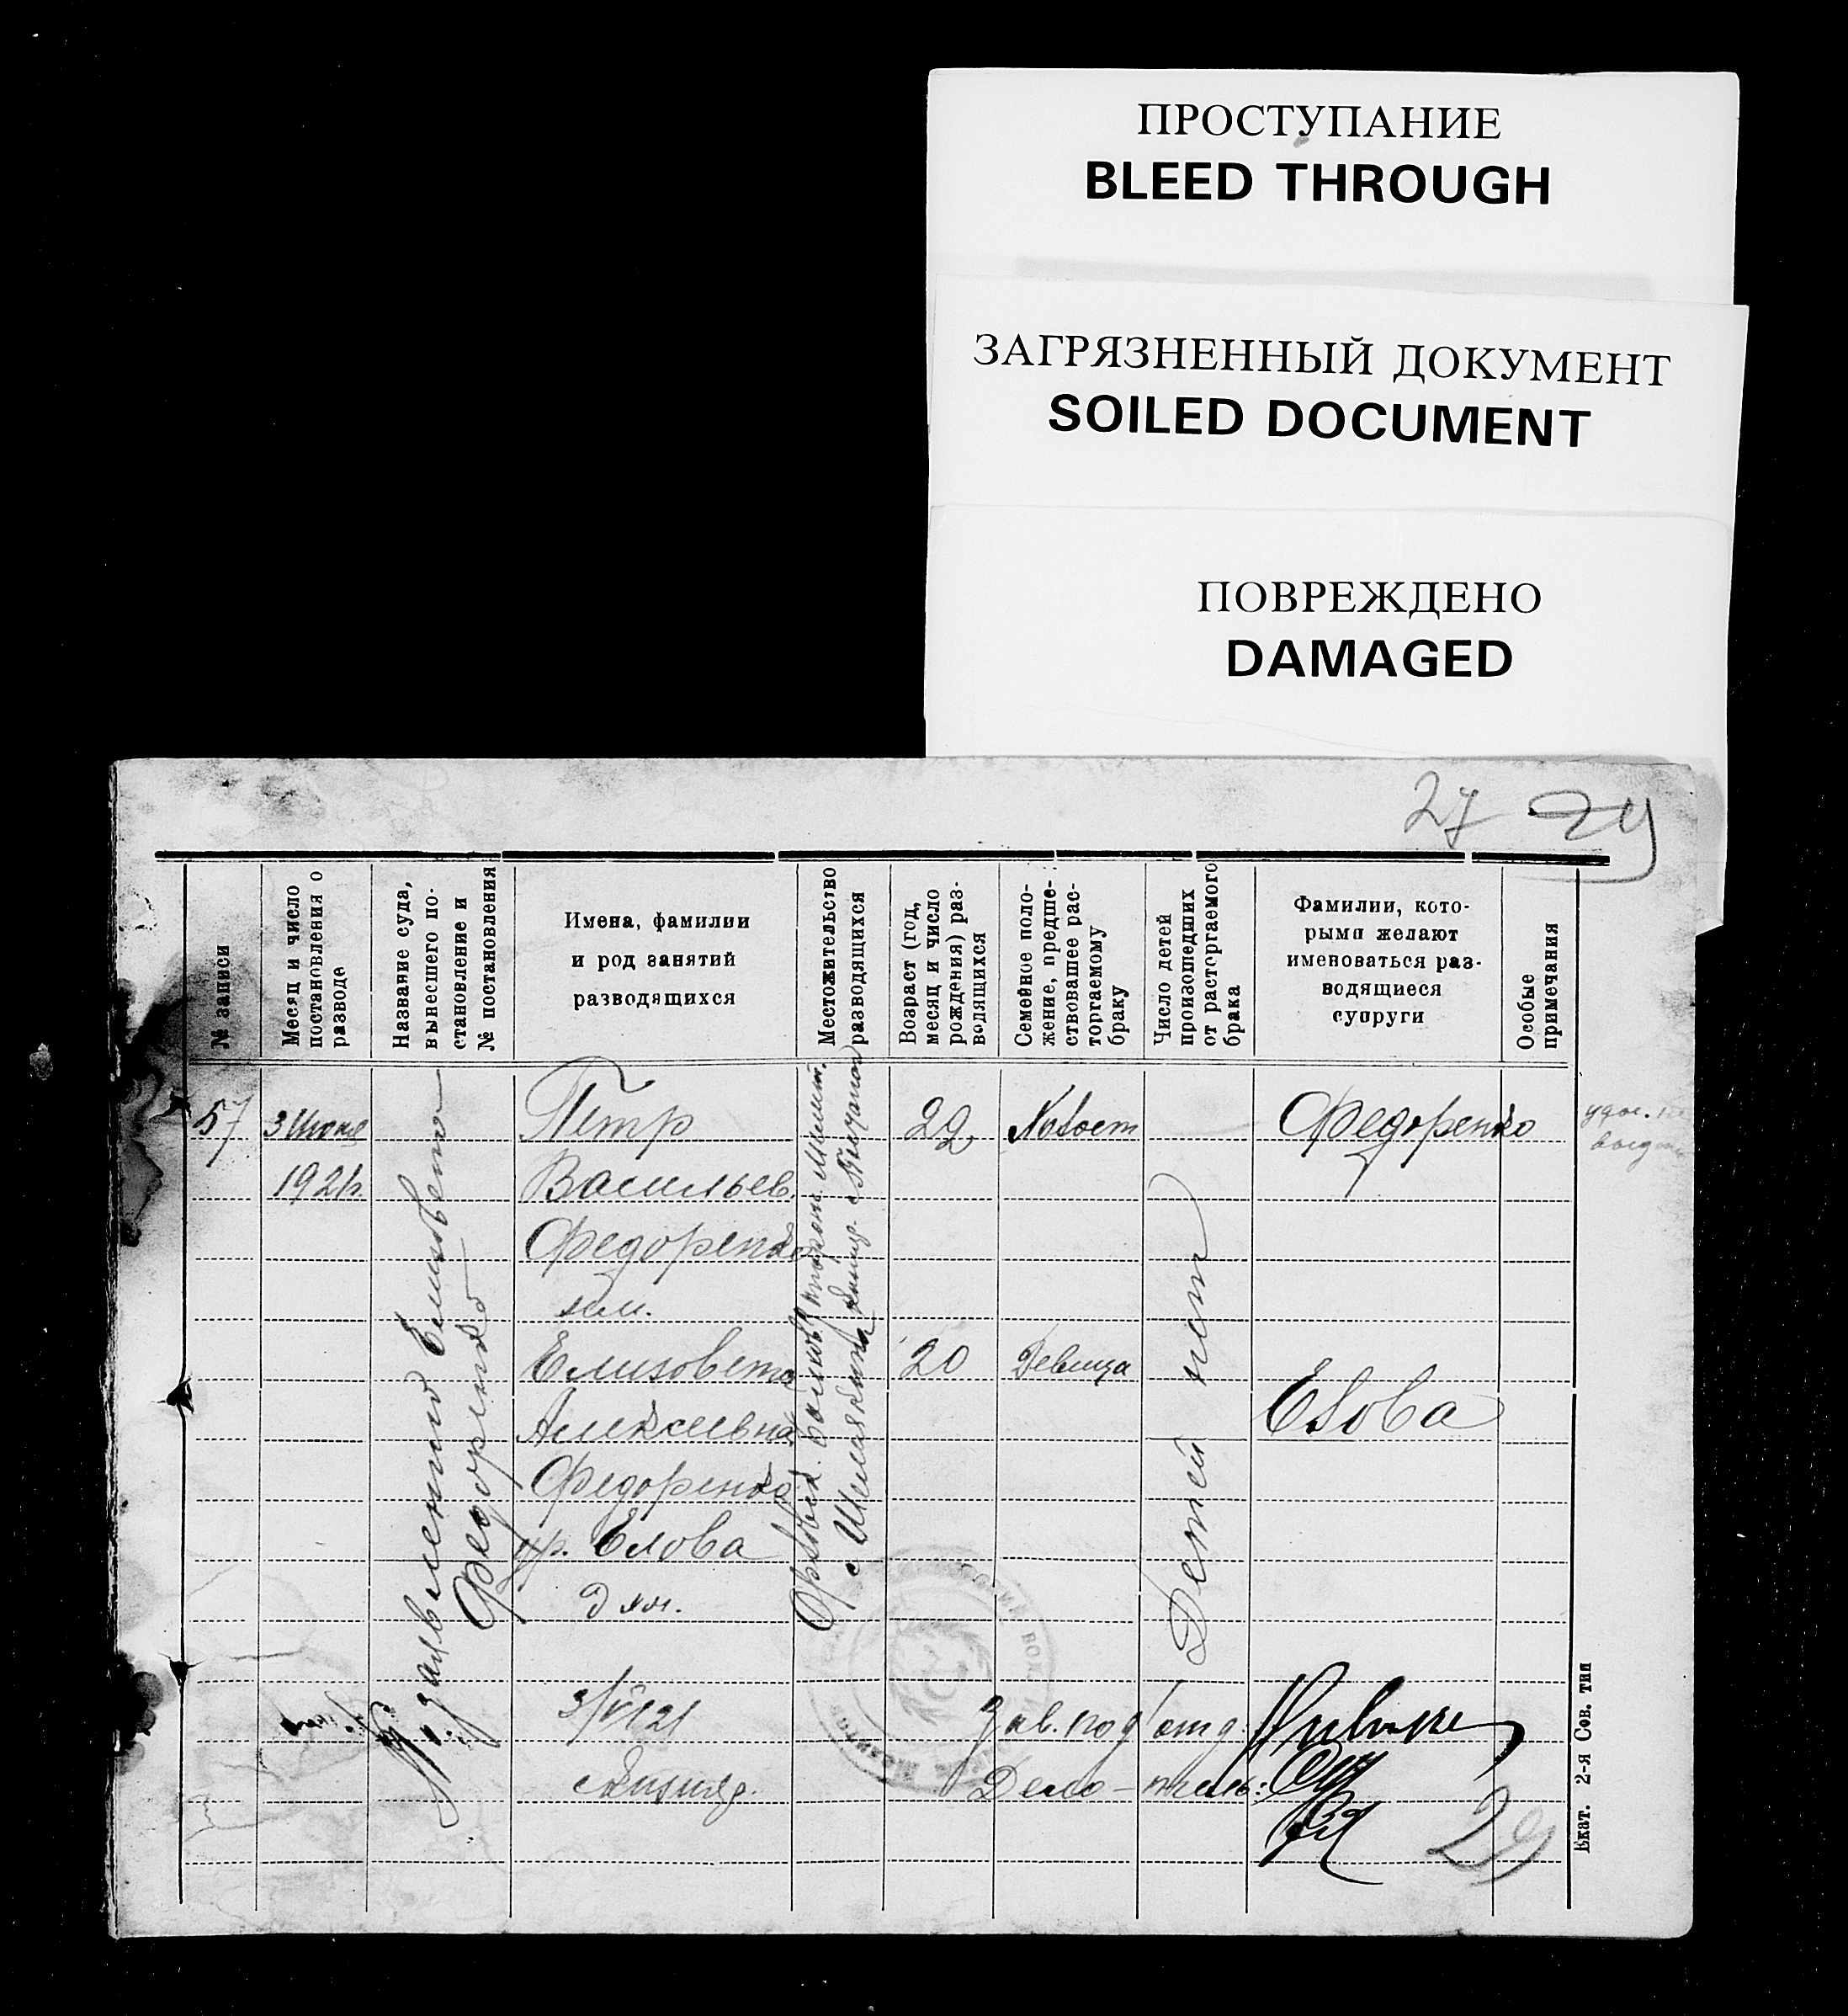 ПРОСТУПАНИЕ
BLEED THROUGH
ЗАГРЯЗНЕННЫЙ ДОКУМЕНТ
SOILED DOCUMENT
ПОВРЕЖДЕНО
DAMAGED
27 29
№ записи
Месяц и число
постановления о
разводе
Название суда,
вынесшего по-
становление и
№ постановления
Имена, фамилии
и род занятий
разводящихся
Местожительство
разводящихся
Возраст (год,
месяц и число
рождения) раз-
водящихся
Семейное поло-
жение, предше-
ствовавшее рас-
торгаемому
браку
Число детей
произошедших
от расторгаемого
брака
Фамилии, кото-
рыми желают
именоваться раз-
водящиеся
супруги
Особые
примечания
57
3 Июня
1921г.
По заявлению Елизовета
Федоренко
Петр
Васильев.
Федоренко
Елизовета
Алексеевна
Федоренко
ур. Елова
3/VI 21
22
20
Холост
Девица
Детей нет
Федоренко
Елова
Зав. под'отд.
Дело-тель:
29
Екат. 2-я Сов. тип